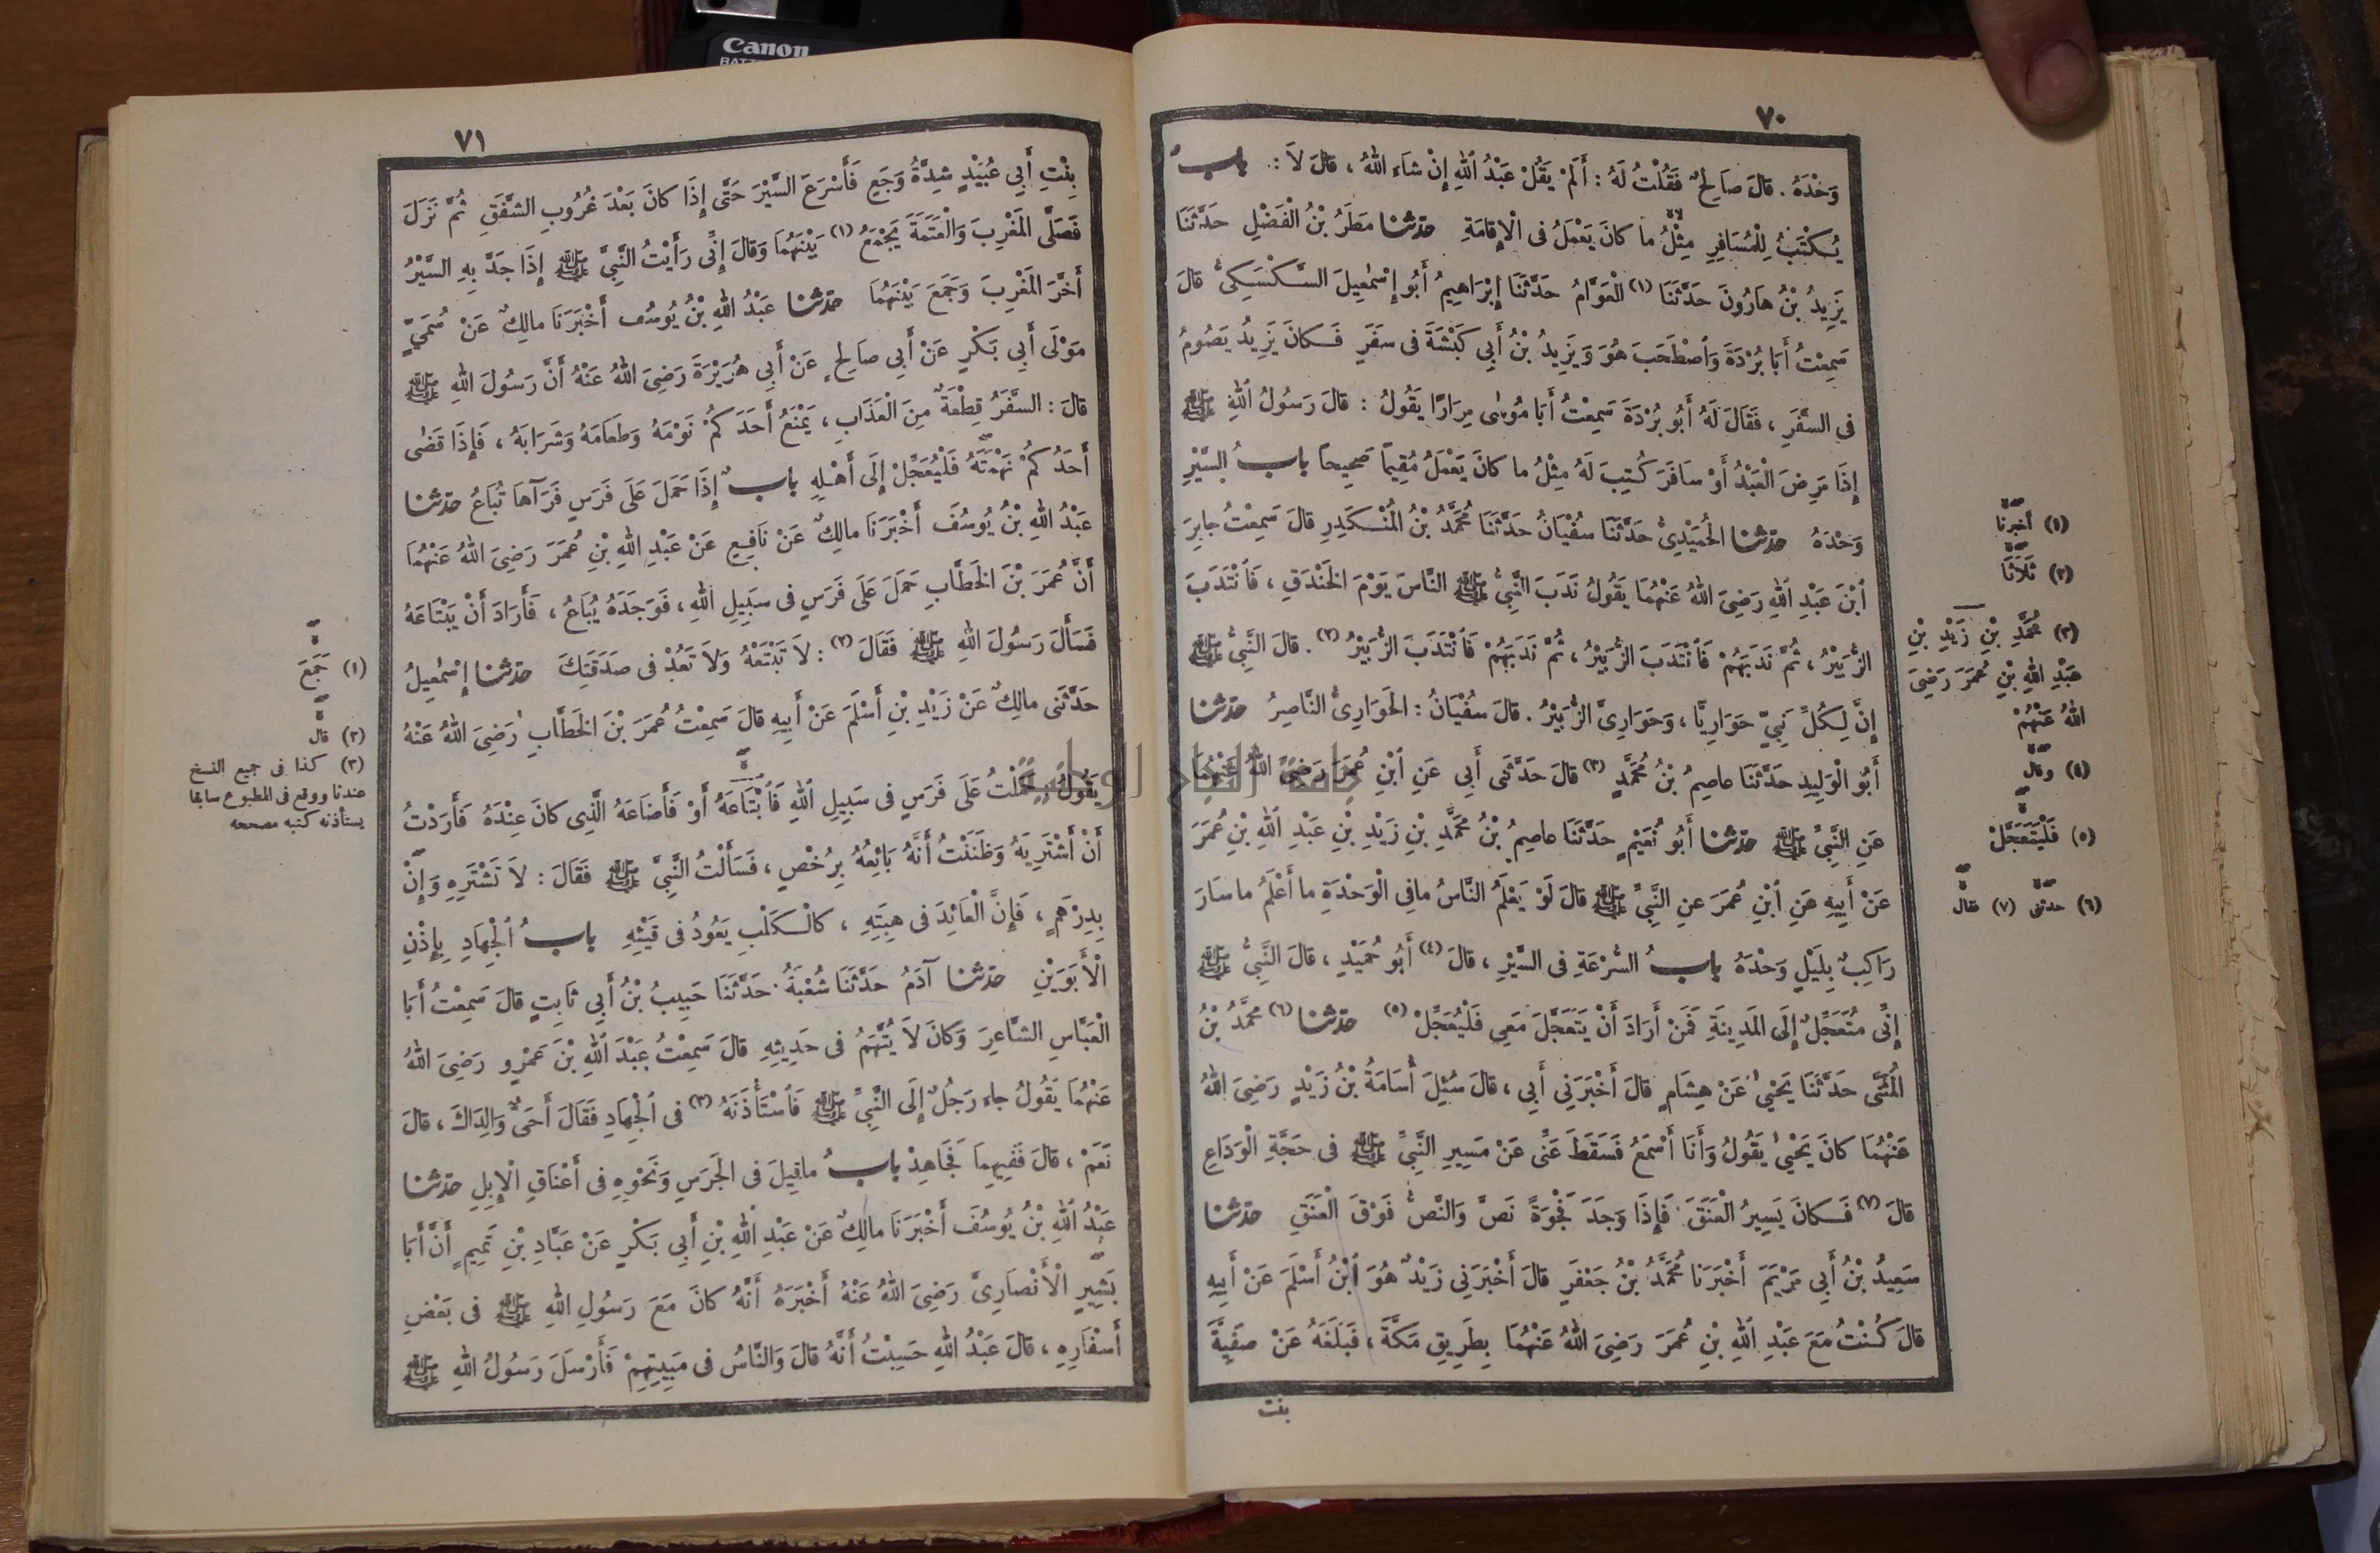 ٧٠
وَحْدَهُ . قَالَ صَالِحٌ فَقُلْتُ لَهُ : أَلَمْ يَقُلْ عَبْدُ اللهِ إِنْ شَاءَ اللهُ ، قَالَ لاَ : بابٌ
يُكْتَبُ لِلْمُسَافِرِ مِثْلُ ما كانَ يَعْمَلُ فى الْإِقامَةِ حدثنا مَطَرُ بْنُ الْفَضْلِ حَدَّثَنَا
يَزِيدُ بْنُ هَارُونَ حَدَّثَنَا (١) الْعَوَّامُ حَدَّثَنَا إِبْرَاهِيمُ أَبُو إِسْمٰعِيلَ السَّكْسَكِىُّ قالَ
سَمِعْتُ أَبَا بُرْدَةَ وَاُصْطَحَبَ هُوَ وَيَزِيدُ بْنُ أَبِي كَبْشَةَ فى سَفَرٍ فَكانَ يَزِيدُ يَصُومُ
فى السَّفَرِ ، فَقَالَ لَهُ أَبُو بُرْدَةَ سَمِعْتُ أَبَا مُوسٰى مِرَارًا يَقُولُ : قالَ رَسُولُ اللهِ ﷺ
إِذَا مَرِضَ الْعَبْدُ أَوْ سَافَرَ كُتِبَ لَهُ مِثْلُ ما كانَ يَعْمَلُ مُقِيماً صَحِيحاً بابُ السَّيْرِ
وَحْدَهُ حدثنا الحُمَيْدِىُّ حَدَّثَنَا سُفْيَانُ حَدَّثَنَا مُحَمَّدُ بْنُ الْمُنْكَدِرِ قالَ سَمِعْتُ جابِرَ
اُبْنَ عَبْدِ اللهِ رَضِىَ اللهُ عَنْهُمَا يَقُولُ نَدَبَ النَّبِيُّ ﷺ النَّاسَ يَوْمَ الخَنْدَقِ ، فَاُنْتَدَبَ
الزُّبَيْرُ ، ثُمَّ نَدَبَهُمْ فَاُنْتَدَبَ الزُّبَيْرُ ، ثُمَّ نَدَبَهُمْ فَاُنْتَدَبَ الزُّبَيْرُ (٢) . قالَ النَّبِيُّ ﷺ
إِنَّ لِكُلِّ نَبِيٍّ حَوَارِيًّا ، وَحَوَارِىَّ الزُّبَيْرُ . قالَ سُفْيَانُ : الحَوَارِىُّ النَّاصِرُ حدثنا
أَبُو الْوَلِيدِ حَدَّثَنَا عاصِمُ بْنُ مُحَمَّدٍ (٣) قالَ حَدَّثَنِى أَبِي عَنِ اُبْنِ عُمَرَ رَضِىَ اللهُ عَنْهُمَا
عَنِ النَّبِيِّ ﷺ حدثنا أَبُو نُعَيْمٍ حَدَّثَنَا عاصِمُ بْنُ مُحَمَّدِ بْنِ زَيْدِ بْنِ عَبْدِ اللهِ بْنِ عُمَرَ
عَنْ أَبِيهِ عَنِ اُبْنِ عُمَرَ عَنِ النَّبِيِّ ﷺ قالَ لَوْ يَعْلَمُ النَّاسُ مافِى الْوَحْدَةِ ما أَعْلَمُ ما سَارَ
رَاكِبٌ بِلَيْلٍ وَحْدَهُ بابُ السُّرْعَةِ فى السَّيْرِ ، قالَ (٤) أَبُو حُمَيْدٍ ، قالَ النَّبِيُّ ﷺ
إِنِّى مُتَعَجِّلٌ إِلَى المَدِينَةِ فَمَنْ أَرَادَ أَنْ يَتَعَجَّلَ مَعِى فَلْيُعَجِّلْ (٥) حدثنا (٦) مُحَمَّدُ بْنُ
الْمُثَنَّى حَدَّثَنَا يَحْيٰى عَنْ هِشَامٍ قالَ أَخْبَرَنِى أَبِي ، قالَ سُئِلَ أُسَامَةُ بْنُ زَيْدٍ رَضِىَ اللهُ
عَنْهُمَا كانَ يَحْيٰى يَقُولُ وَأَنَا أَسْمَعُ فَسَقَطَ عَنِّى عَنْ مَسِيرِ النَّبِيِّ ﷺ فى حَجَّةِ الْوَدَاعِ
قالَ (٧) فَكانَ يَسِيرُ الْعَنَقَ فَإِذَا وَجَدَ فَجْوَةً نَصَّ وَالنَّصُّ فَوْقَ الْعَنَقِ حدثنا
سَعِيدُ بْنُ أَبِي مَرْيَمَ أَخْبَرَنَا مُحَمَّدُ بْنُ جَعْفَرٍ قالَ أَخْبَرَنِى زَيْدٌ هُوَ اُبْنُ أَسْلَمَ عَنْ أَبِيهِ
قالَ كُنْتُ مَعَ عَبْدِ اللهِ بْنِ عُمَرَ رَضِىَ اللهُ عَنْهُمَا بِطَرِيقِ مَكَّةَ ، فَبَلَغَهُ عَنْ صَفِيَّةَ
بنت
(١) أخبرنا
(٢) ثَلَاثًا
(٣) مُحَمَّدِ بْنِ زَيْدِ بْنِ
عَبْدِ اللهِ بْنِ عُمَرَ رَضِىَ
اللهُ عَنْهُمْ
(٤) وقال
(٥) فَلْيَتَعَجَّلْ
(٦) حدثنى (٧) فقال
٧١
بِنْتِ أَبِي عُبَيْدٍ شِدَّةُ وَجَعٍ فَأَسْرَعَ السَّيْرَ حَتَّى إِذَا كانَ بَعْدَ غُرُوبِ الشَّفَقِ ثُمَّ نَزَلَ
فَصَلَّى المَغْرِبَ وَالْعَتَمَةَ يَجْمَعُ (١) بَيْنَهُمَا وَقالَ إِنِّى رَأَيْتُ النَّبِيَّ ﷺ إِذَا جَدَّ بِهِ السَّيْرُ
أَخَّرَ المَغْرِبَ وَجَمَعَ بَيْنَهُمَا حدثنا عَبْدُ اللهِ بْنُ يُوسُفَ أَخْبَرَنَا مالِكٌ عَنْ سُمَيٍّ
مَوْلَى أَبِي بَكْرٍ عَنْ أَبِي صَالِحٍ عَنْ أَبِي هُرَيْرَةَ رَضِىَ اللهُ عَنْهُ أَنَّ رَسُولَ اللهِ ﷺ
قالَ : السَّفَرُ قِطْعَةٌ مِنَ الْعَذَابِ ، يَمْنَعُ أَحَدَكُمْ نَوْمَهُ وَطَعَامَهُ وَشَرَابَهُ ، فَإِذَا قَضٰى
أَحَدُكُمْ نَهْمَتَهُ فَلْيُعَجِّلْ إِلَى أَهْلِهِ بابٌ إِذَا حَمَلَ عَلَى فَرَسٍ فَرَآهَا تُبَاعُ حدثنا
عَبْدُ اللهِ بْنُ يُوسُفَ أَخْبَرَنَا مالِكٌ عَنْ نَافِعٍ عَنْ عَبْدِ اللهِ بْنِ عُمَرَ رَضِىَ اللهُ عَنْهُمَا
أَنَّ عُمَرَ بْنَ الخَطَّابِ حَمَلَ عَلَى فَرَسٍ فى سَبِيلِ اللهِ ، فَوَجَدَهُ يُبَاعُ ، فَأَرَادَ أَنْ يَبْتَاعَهُ
فَسَأَلَ رَسُولَ اللهِ ﷺ فَقَالَ (٢) : لاَ تَبْتَعْهُ وَلاَ تَعُدْ فى صَدَقَتِكَ حدثنا إِسْمٰعِيلُ
حَدَّثَنِى مالِكٌ عَنْ زَيْدِ بْنِ أَسْلَمَ عَنْ أَبِيهِ قالَ سَمِعْتُ عُمَرَ بْنَ الخَطَّابِ رَضِىَ اللهُ عَنْهُ
يَقُولُ حَمَلْتُ عَلَى فَرَسٍ فى سَبِيلِ اللهِ فَاُبْتَاعَهُ أَوْ فَأَضَاعَهُ الَّذِى كانَ عِنْدَهُ فَأَرَدْتُ
أَنْ أَشْتَرِيَهُ وَظَنَنْتُ أَنَّهُ بَائِعُهُ بِرُخْصٍ ، فَسَأَلْتُ النَّبِيَّ ﷺ فَقَالَ : لاَ تَشْتَرِهِ وَإِنْ
بِدِرْهَمٍ ، فَإِنَّ الْعَائِدَ فى هِبَتِهِ ، كالْكَلْبِ يَعُودُ فى قَيْئِهِ بابُ الْجِهَادِ بِإِذْنِ
الْأَبَوَيْنِ حدثنا آدَمُ حَدَّثَنَا شُعْبَةُ حَدَّثَنَا حَبِيبُ بْنُ أَبِي ثَابِتٍ قالَ سَمِعْتُ أَبَا
الْعَبَّاسِ الشَّاعِرَ وَكانَ لاَ يُتَّهَمُ فى حَدِيثِهِ قالَ سَمِعْتُ عَبْدَ اللهِ بْنَ عَمْرٍو رَضِىَ اللهُ
عَنْهُمَا يَقُولُ جاءَ رَجُلٌ إِلَى النَّبِيِّ ﷺ فَاُسْتَأْذَنَهُ (٣) فى الْجِهَادِ فَقَالَ أَحَىٌّ وَالِدَاكَ ، قالَ
نَعَمْ ، قالَ فَفِيهِمَا فَجَاهِدْ بابُ ماقِيلَ فى الجَرَسِ وَنَحْوِهِ فى أَعْنَاقِ الْإِبِلِ حدثنا
عَبْدُ اللهِ بْنُ يُوسُفَ أَخْبَرَنَا مالِكٌ عَنْ عَبْدِ اللهِ بْنِ أَبِي بَكْرٍ عَنْ عَبَّادِ بْنِ تَمِيمٍ أَنَّ أَبَا
بَشِيرٍ الْأَنْصَارِىَّ رَضِىَ اللهُ عَنْهُ أَخْبَرَهُ أَنَّهُ كانَ مَعَ رَسُولِ اللهِ ﷺ فى بَعْضِ
أَسْفَارِهِ ، قالَ عَبْدُ اللهِ حَسِبْتُ أَنَّهُ قالَ وَالنَّاسُ فى مَبِيتِهِمْ فَأَرْسَلَ رَسُولُ اللهِ ﷺ
(١) جَمَعَ
(٢) قال
(٣) كذا فى جميع النسخ
عندنا ووقع فى المطبوع سابقا
يستأذنه كتبه مصححه
Canon
جامعة النجاح الوطنية